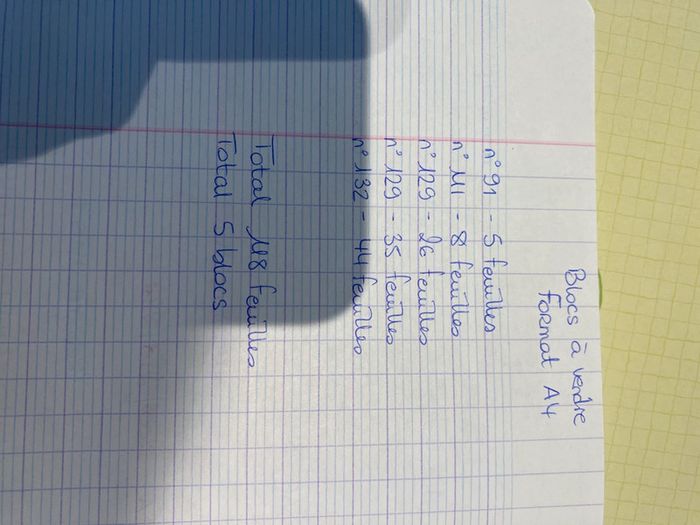 Blocs à vendre
format A4
n° 91 - 5 feuilles
n° 111 - 8 feuilles
n° 129 - 26 feuilles
n° 129 - 35 feuilles
n° 132 - 44 feuilles
Total 118 feuilles
Total 5 blocs